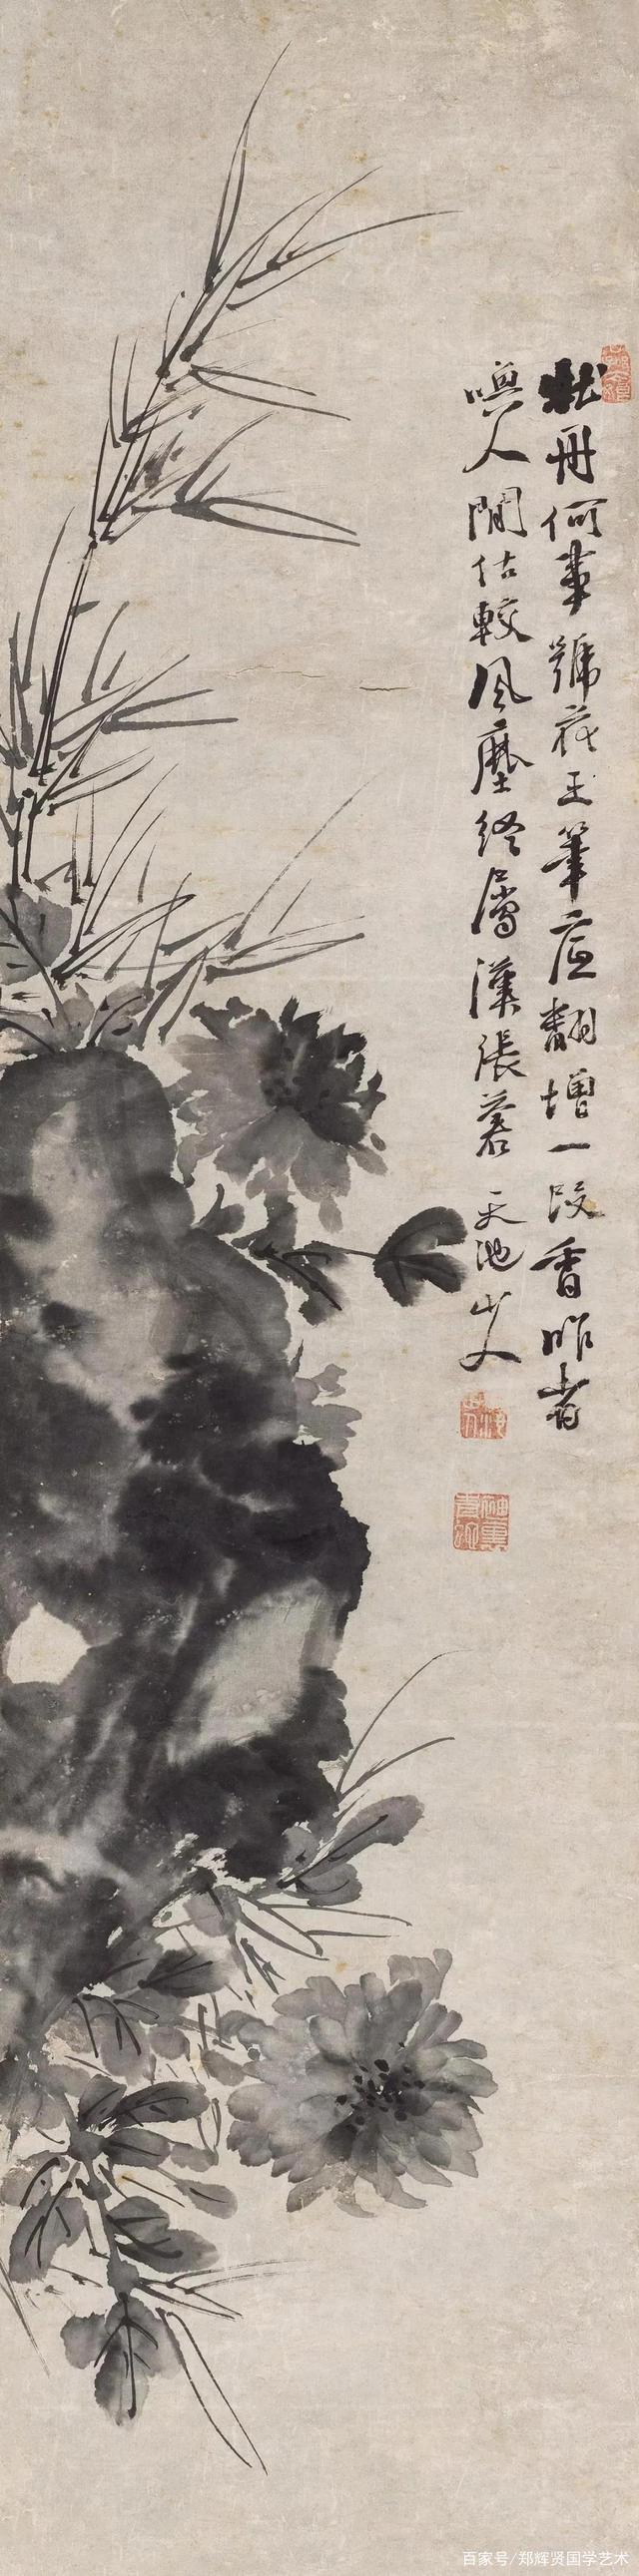 牡丹何事號花王筆底翻增一段香昨者
喚人閒估較風塵終屬漢張蒼 天池山人
百家号/郑辉贤国学艺术